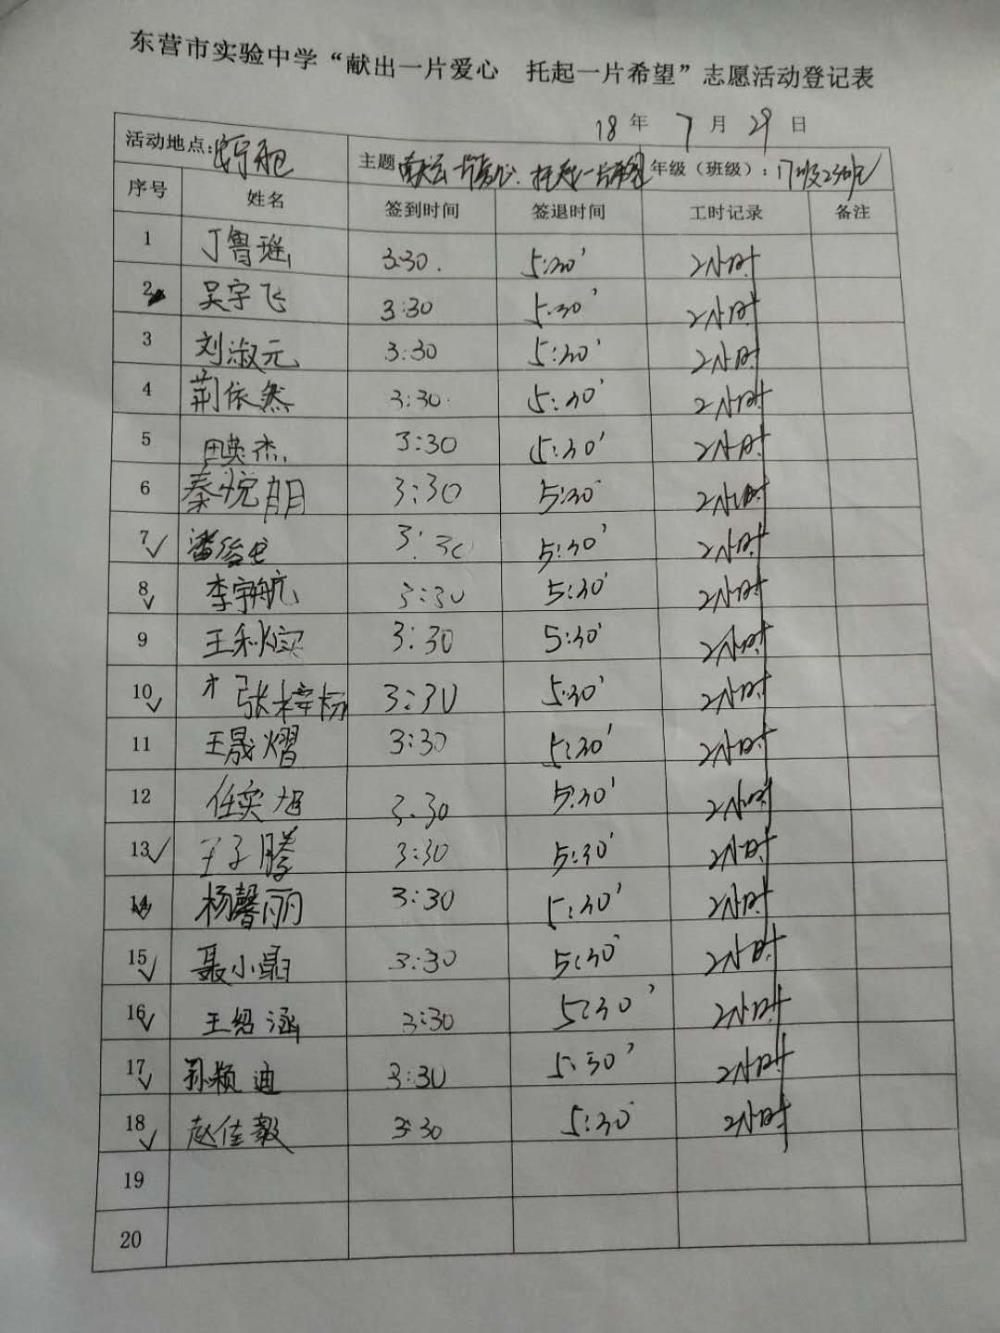 东营市实验中学“献出一片爱心 托起一片希望”志愿活动登记表
18年 7月 29日
活动地点: 主题 一片爱心、托起一片希望 年级（班级）: 17级
序号 姓名 签到时间 签退时间 工时记录 备注
1 丁鲁瑶 3:30. 5:30' 2小时
2 吴宇飞 3:30 5:30' 2小时
3 刘淑元 3:30 5:30' 2小时
4 荆依然 3:30 5:30' 2小时
5 田英杰 3:30 5:30' 2小时
6 秦悦朋 3:30 5:30 2小时
7 潘 3:30 5:30' 2小时
8 李宇航 3:30 5:30' 2小时
9 王秋实 3:30 5:30' 2小时
10 张梓杨 3:30 5:30' 2小时
11 王晟熠 3:30 5:30' 2小时
12 任奕旭 3:30 5:30' 2小时
13 王子腾 3:30 5:30' 2小时
14 杨馨丽 3:30 5:30' 2小时
15 聂小 3:30 5:30' 2小时
16 王绍涵 3:30 5:30' 2小时
17 孙颖迪 3:30 5:30' 2小时
18 赵佳毅 3:30 5:30' 2小时
19
20